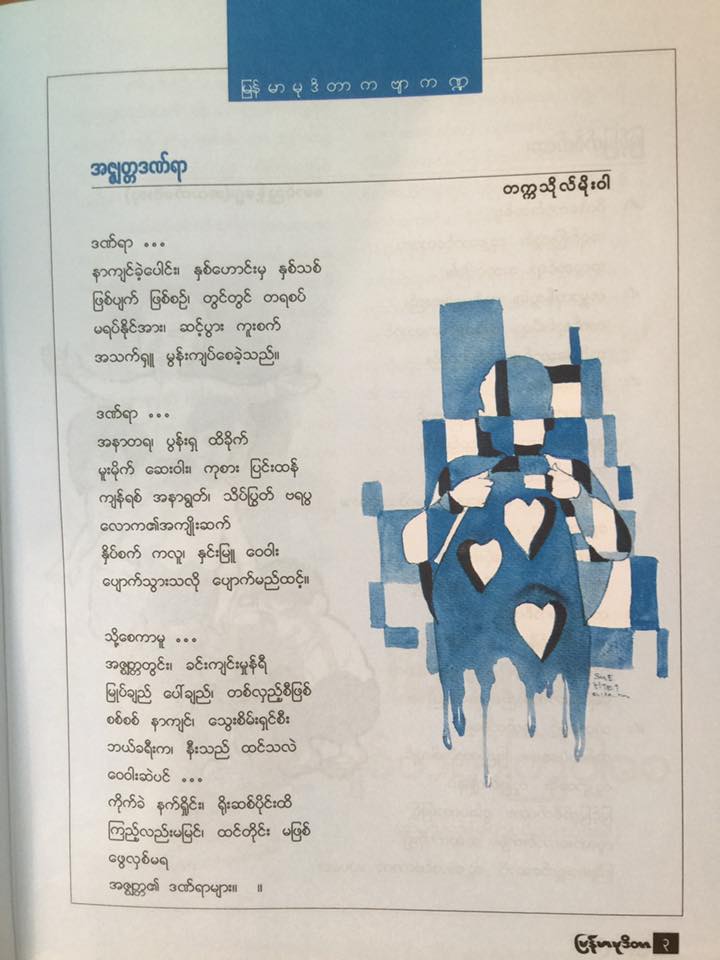 မြန်မာမုဒိတာကဗျာကဏ္ဍ
အဇ္ဈတ္တဒဏ်ရာ
တက္ကသိုလ်မိုးဝါ
ဒဏ်ရာ ...
နာကျင်ခဲ့ပေါင်း၊ နှစ်ဟောင်းမှ နှစ်သစ်
ဖြစ်ပျက် ဖြစ်စဉ်၊ တွင်တွင် တရစပ်
မရပ်နိုင်အား၊ ဆင့်ပွား ကူးစက်
အသက်ရှူ မွန်းကျပ်စေခဲ့သည်။
ဒဏ်ရာ ...
အနာတရ၊ ပွန်းရှ ထိခိုက်
မူးမိုက် ဆေးဝါး၊ ကုစား ပြင်းထန်
ကျန်ရစ် အနာရွတ်၊ သိပ်ပြွတ် ဗရပွ
လောက၏အကျိုးဆက်
နှိပ်စက် ကလူ၊ နှင်းမြူ ဝေဝါး
ပျောက်သွားသလို ပျောက်မည်ထင့်။
သို့စေကာမူ ...
အဇ္ဈတ္တတွင်း၊ ခင်းကျင်းမှုန်ရီ
မြုပ်ချည် ပေါ်ချည်၊ တစ်လှည့်စီဖြစ်
စစ်စစ် နာကျင်၊ သွေးစိမ်းရှင်စီး
ဘယ်ခရီးက၊ နီးသည် ထင်သလဲ
ဝေဝါးဆဲပင် ...
ကိုက်ခဲ နက်ရှိုင်း၊ ရိုးဆစ်ပိုင်းထိ
ကြည့်လည်းမမြင်၊ ထင်တိုင်း မဖြစ်
ဖွေလှစ်မရ
အဇ္ဈတ္တ၏ ဒဏ်ရာများ။ ။
မြန်မာမုဒိတာ ၃